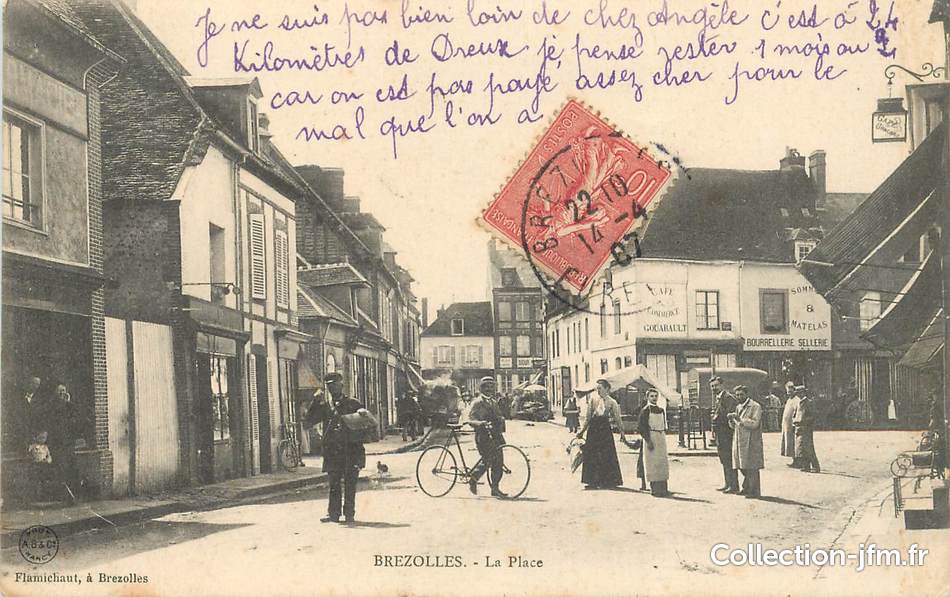 Je ne suis pas bien loin de chez Angèle c'est à 24
Kilomètres de Dreux je pense rester 1 mois ou 2
car on est pas payé assez cher pour le
mal que l'on a
POSTES
10
REPUBLIQUE FRANÇAISE
BREZ
22 10
14-4
07
CAFÉ
COMMERCE
GOUABAULT
SOMM
&
MATELAS
BOURRELLERIE SELLERIE
BREZOLLES. - La Place
Flamichaut, à Brezolles
Collection-jfm.fr